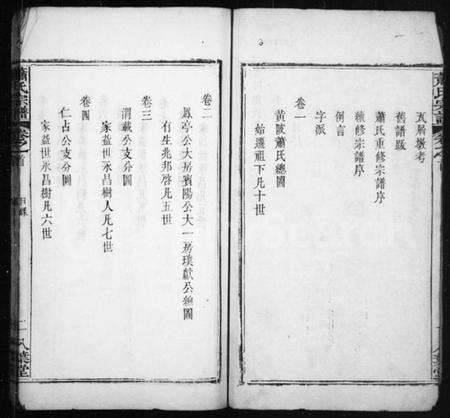 蕭氏宗譜
卷之首
瓦屑墩考
舊譜跋
蕭氏重修宗譜序
續修宗譜序
例言
字派
卷一
黃陂蕭氏總圖
始遷祖下凡十世
八葉堂
卷二
鳳亭公大房賓陽公大一房璞獻公總圖
有生兆邦啓凡五世
卷三
渭載公支分圖
家益世永昌樹人凡七世
卷四
仁占公支分圖
家益世永昌樹凡六世
蕭氏宗譜
卷之首
目錄
二
八葉堂